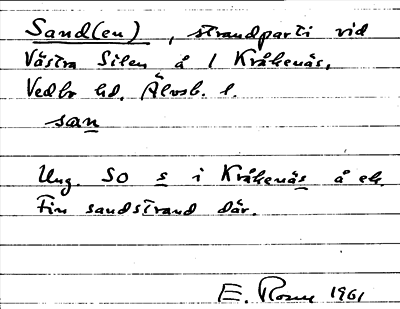 Sand(en), strandparti vid
Västra Silen å 1 Kråkenäs,
Vedbo hd, Älvsb. l.
san
Ung. SO s i Kråkenäs å ek.
Fin sandstrand där.
E. 1961